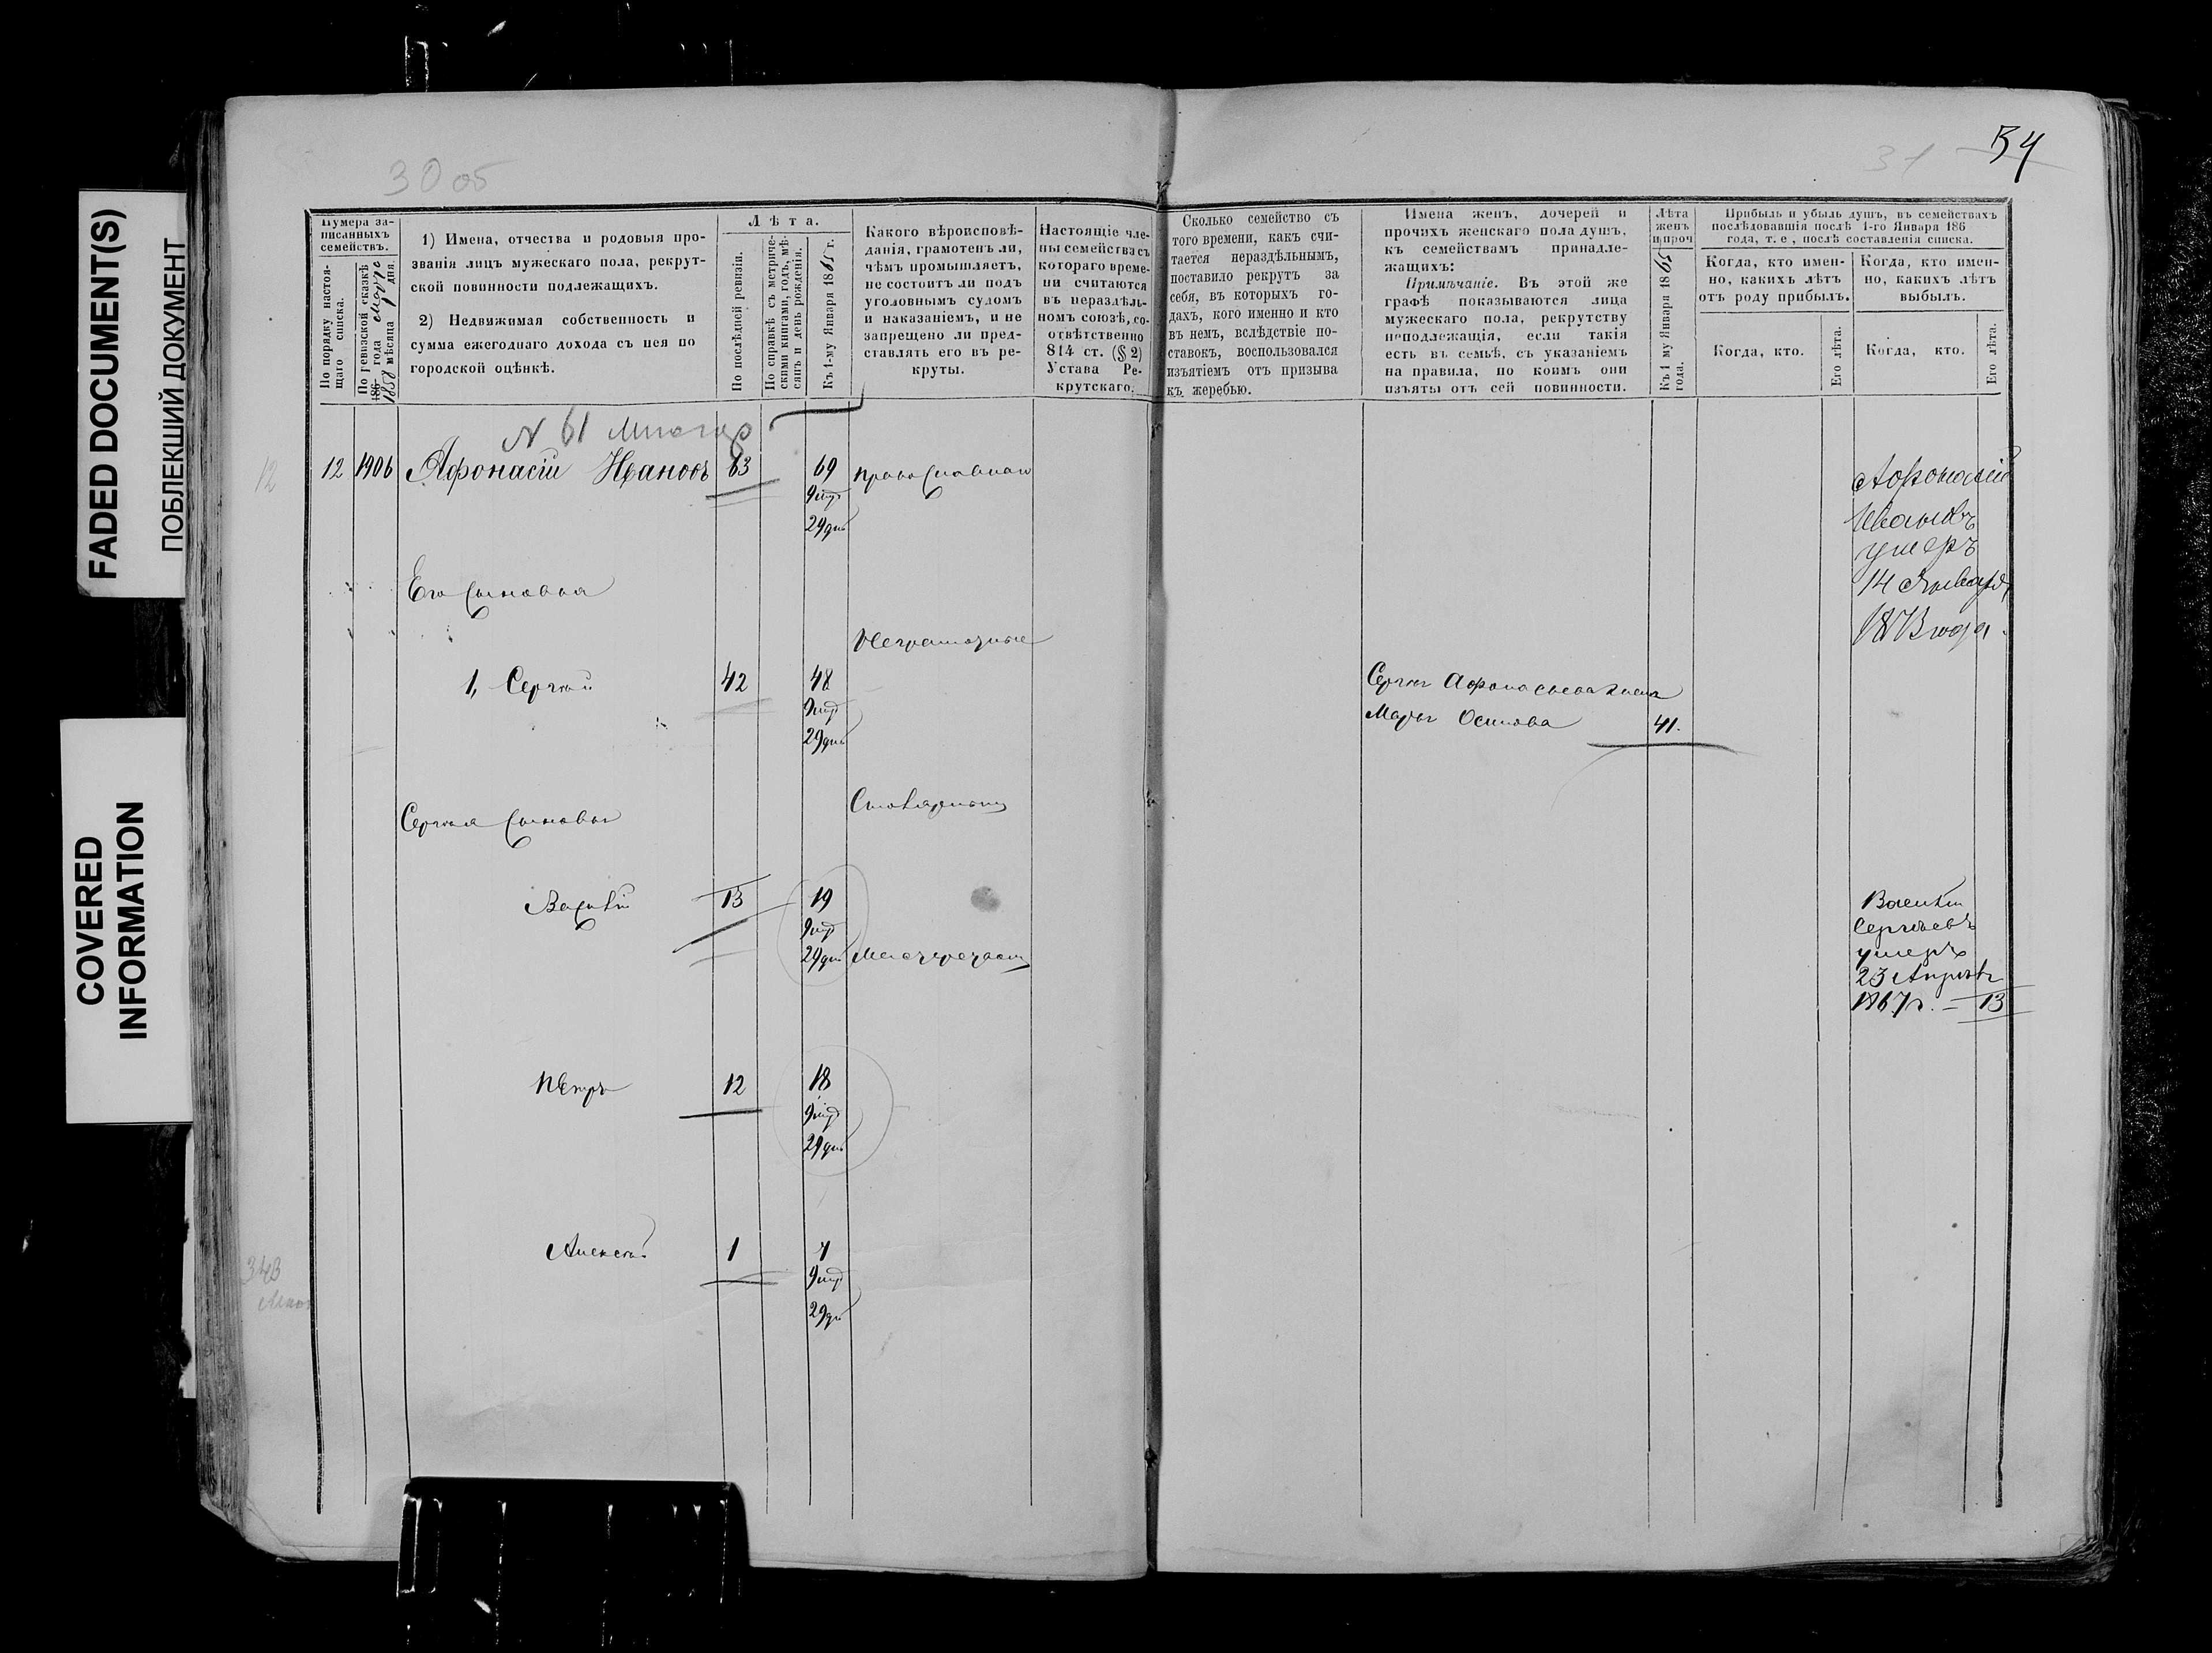 FADED DOCUMENT(S)
ПОБЛЕКШИЙ ДОКУМЕНТ
COVERED
INFORMATION
30 об
31
54
Нумера за-
писанныхъ
семействъ.
По порядку настоя-
щаго списка.
По ревизской сказкѣ
186 года
1858 мѣсяца 1 дня.
1) Имена, отчества и родовыя про-
званія лицъ мужескаго пола, рекрут-
ской повинности подлежащихъ.
2) Недвижимая собственность и
сумма ежегоднаго дохода съ нея по
городской оцѣнкѣ.
Лѣта.
По послѣдней ревизіи.
По справкѣ съ метриче-
скими книгами, годъ, мѣ-
сяцъ и день рожденія.
Къ 1-му Января 1865 г.
Какого вѣроисповѣ-
данія, грамотенъ ли,
чѣмъ промышляетъ,
не состоитъ ли подъ
уголовнымъ судомъ
и наказаніемъ, и не
запрещено ли пред-
ставлять его въ ре-
круты.
Настоящіе чле-
ны семейства съ
котораго време-
ни считаются
въ нераздѣль-
номъ союзѣ, со-
отвѣтственно
814 ст. (§ 2)
Устава Ре-
крутскаго.
Сколько семейство съ
того времени, какъ счи-
тается нераздѣльнымъ,
поставило рекрутъ за
себя, въ которыхъ го-
дахъ, кого именно и кто
въ немъ, вслѣдствіе по-
ставокъ, воспользовался
изъятіемъ отъ призыва
къ жеребью.
Имена женъ, дочерей и
прочихъ женскаго пола душъ,
къ семействамъ принадле-
жащихъ:
Примѣчаніе. Въ этой же
графѣ показываются лица
мужескаго пола, рекрутству
неподлежащія, если такія
есть въ семьѣ, съ указаніемъ
на правила, по коимъ они
изъяты отъ сей повинности.
Лѣта
женъ
и проч
Къ 1 му Января 1865
года.
Прибыль и убыль душъ, въ семействахъ
послѣдовавшія послѣ 1-го Января 186
года, т. е, послѣ составленія списка.
Когда, кто имен-
но, какихъ лѣтъ
отъ роду прибылъ.
Когда, кто имен-
но, какихъ лѣтъ
выбылъ.
Когда, кто.
Его лѣта.
Когда, кто.
Его лѣта.
N 61
12
12 1906 Афонасій Ивановъ 63 69 православнаго
9 мѣ
29 дн
Афонасій
Ивановъ
умеръ
14 Января
1873 года.
Его сыновья
Неграмотные
1, Сергѣй 42 48
9 мѣ
29 дн
Сергѣя Афонасьева жена
Марья Осипова 41.
Сергѣя сыновья
Столярною
Василій 13 19
9 мѣ
29 дн
Василій
Сергѣевъ
умеръ
23 Апрѣля
1867 г. — 13
Петръ 12 18
9 мѣ
29 дн
Алексѣй 1 7
9 мѣ
29 дн
343